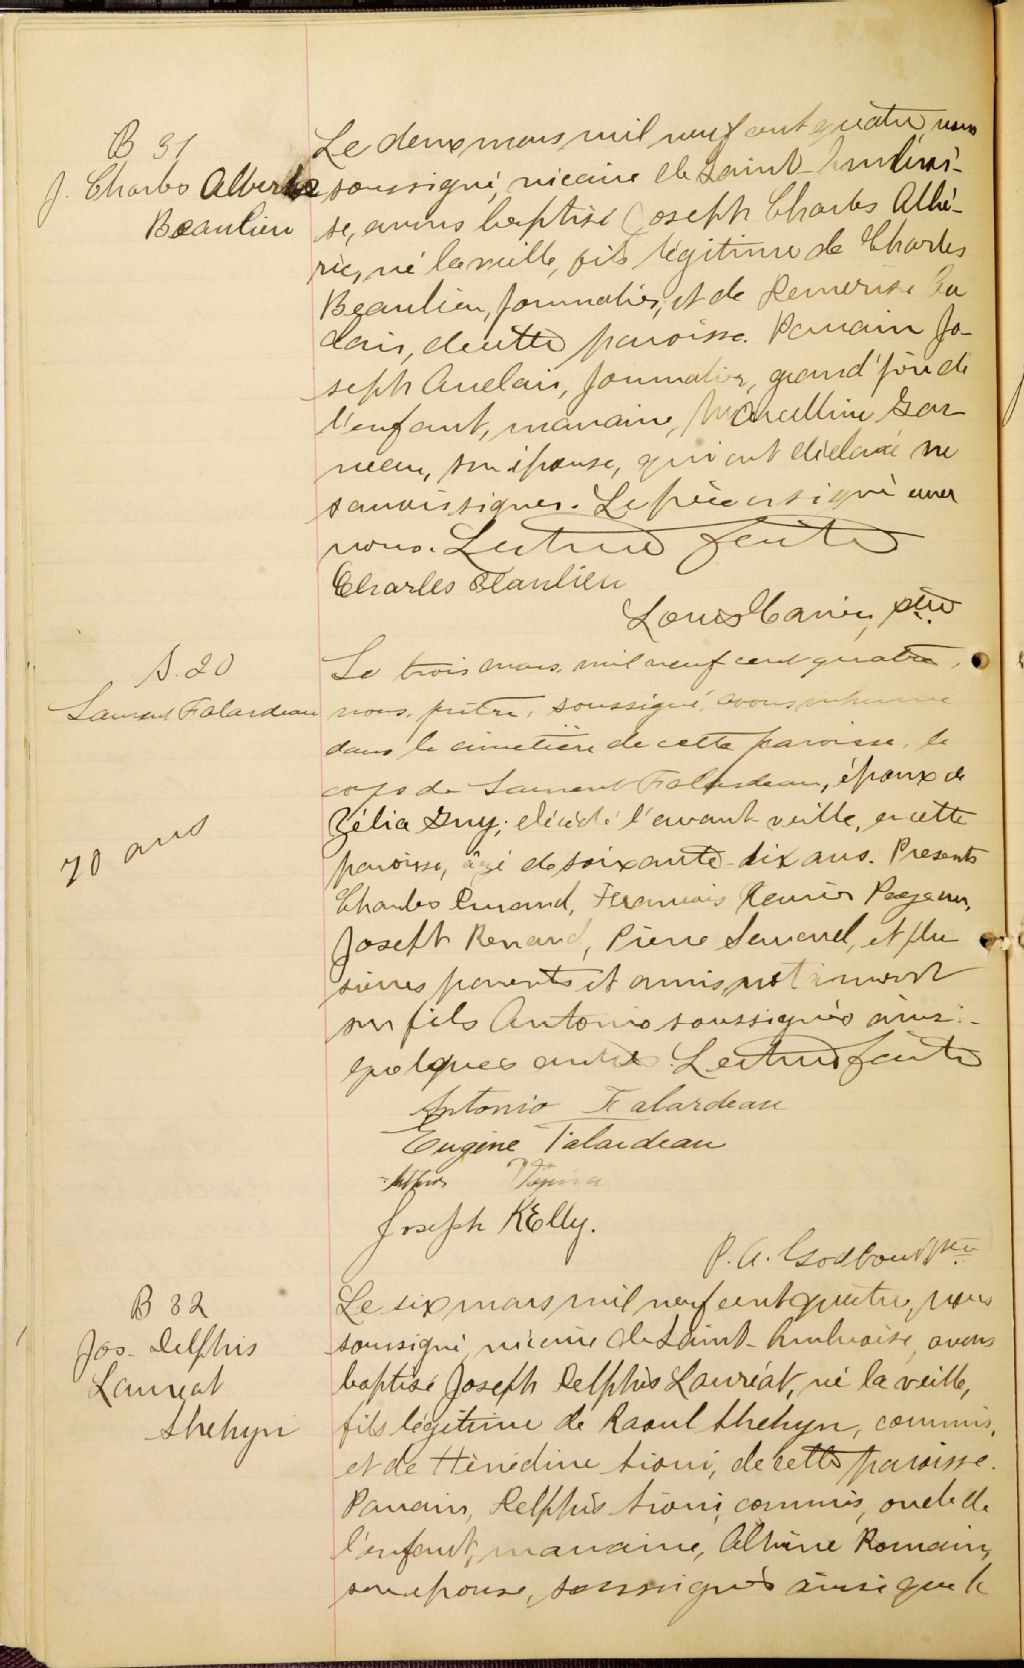 B 31
J. Charles Albert
Beaulieu
Le deux mars mil neuf cent quatre, nous
soussigné, vicaire de Saint-Ambroi-
se, avons baptisé Joseph Charles Albé-
ric, né la veille, fils légitime de Charles
Beaulieu, journalier, et de Remerise
dais, de cette paroisse. Parrain Jo-
seph Audais, journalier, grand'père de
l'enfant, marraine, Marcelline Gar-
neau, son épouse, qui ont déclaré ne
savoir signer. Le père a signé avec
nous. Lecture faite
Charles Beaulieu
Louis ptre
S. 20
Laurent Falardeau
70 ans
Le trois mars mil neuf cent quatre,
nous, prêtre, soussigné, avons inhumé
dans le cimetière de cette paroisse, le
corps de Laurent Falardeau, époux de
Zélia Guy, décédé l'avant-veille, en cette
paroisse, âgé de soixante-dix ans. Présents
Charles Durand, François Xavier Pageau,
Joseph Renaud, Pierre Savard, et plu
sieurs parents et amis notamment
son fils Antonio soussignés ainsi-
quelques autres. Lecture faite
Antonio Falardeau
Eugène Falardeau
Arthur
Joseph Kelly.
P. A. Godbout Ptre
B 32
Jos. Delphis
Lauréat
Shehyn
Le six mars mil neuf cent quatre, nous
soussigné, vicaire de Saint-Ambroise, avons
baptisé Joseph Delphis Lauréat, né la veille,
fils légitime de Raoul Shehyn, commis,
et de Hénédine Sioui, de cette paroisse.
Parrain, Delphis Sioui, commis, oncle de
l'enfant, marraine, Albine Romain,
son épouse, soussignés ainsi que le